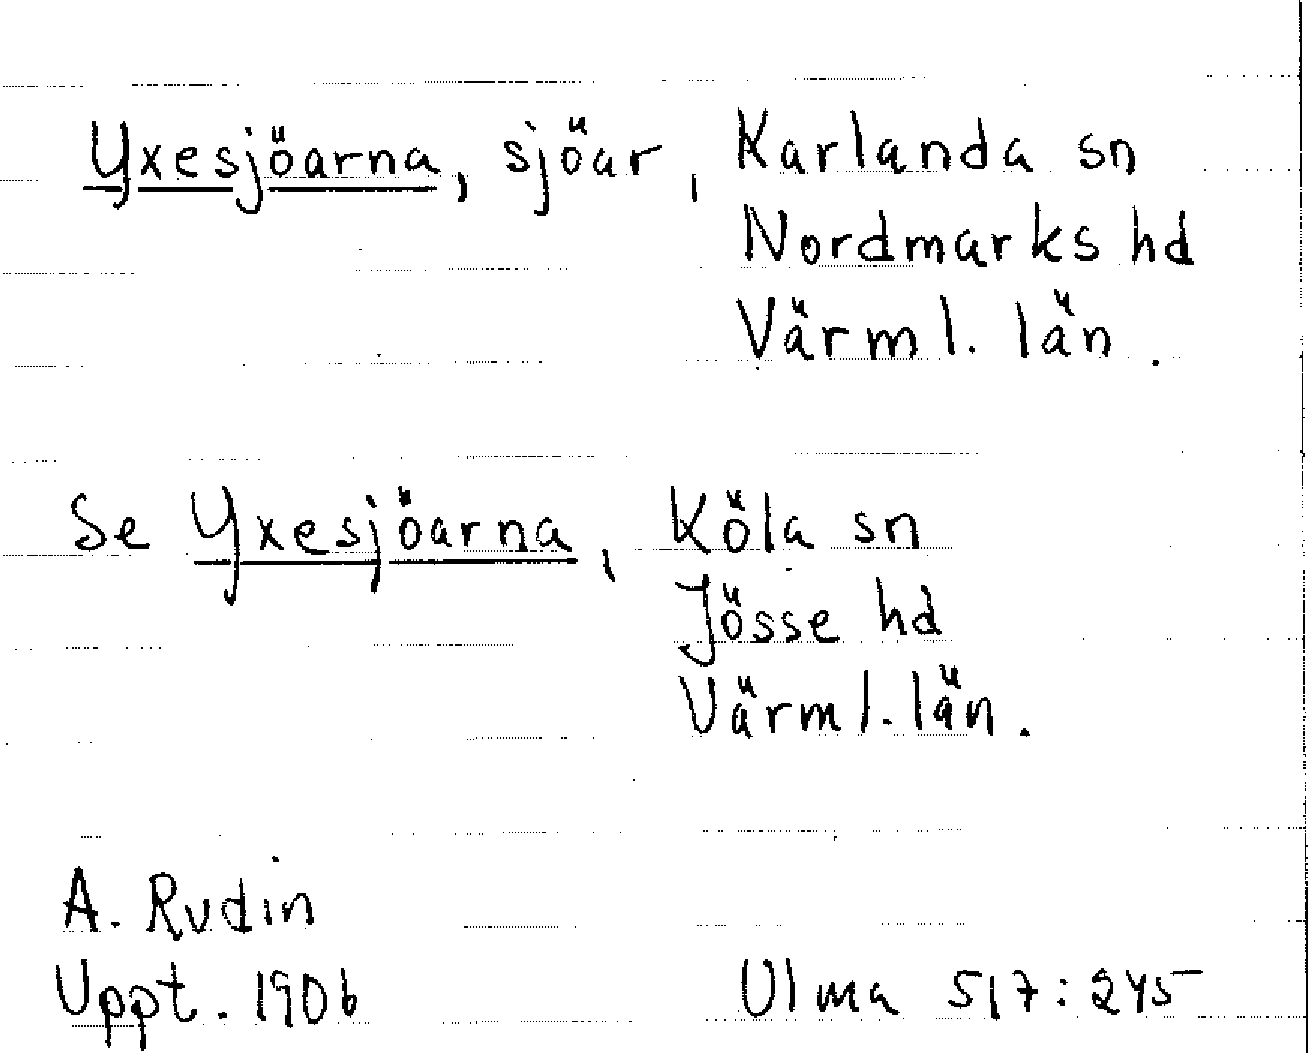 Yxesjöarna, sjöar, Karlanda sn
Nordmarks hd
Värml. län.
Se Yxesjöarna, Köla sn
Jösse hd
Värml. län.
A. Rudin
Uppt. 1906
Ulma 517:245